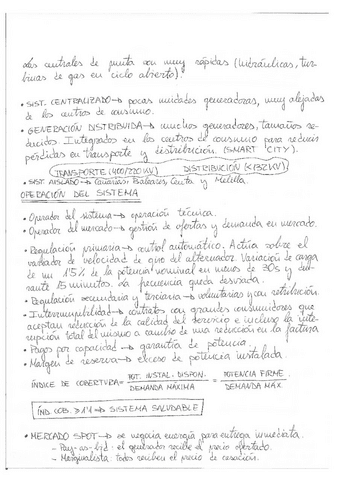 las centrales de punta son muy rápidas (hidráulicas, tur-
binas de gas en ciclo abierto).
• SIST. CENTRALIZADO → pocas unidades generadoras, muy alejadas
de los centros de consumo.
• GENERACIÓN DISTRIBUIDA → muchos generadores, tamaños re-
ducidos. Integrados en los centros de consumo para reducir
pérdidas en transporte y distribución. (SMART CITY).
TRANSPORTE (400/220 KV) DISTRIBUCIÓN (<132 KV)
• SIST. AISLADO → Canarias, Baleares, Ceuta y Melilla.
OPERACIÓN DEL SISTEMA
• Operador del sistema → operación técnica.
• Operador del mercado → gestión de ofertas y demanda en mercado.
• Regulación primaria → control automático. Actúa sobre el
variador de velocidad de giro del alternador. Variación de carga
de un 1'5% de la potencia nominal en menos de 30s y du-
rante 15 minutos. La frecuencia queda desviada.
• Regulación secundaria y terciaria → voluntarias y con retribución.
• Interrumpibilidad → contratos con grandes consumidores que
aceptan reducción de la calidad del servicio e incluso la inte-
rrupción total del mismo a cambio de una reducción en la factura
• Pagos por capacidad → garantía de potencia.
• Margen de reserva → exceso de potencia instalada.
ÍNDICE DE COBERTURA = POT. INSTAL. DISPON. / DEMANDA MÁXIMA = POTENCIA FIRME / DEMANDA MÁX
IND. COB. ≥ 1'1 → SISTEMA SALUDABLE
• MERCADO SPOT → se negocia energía para entrega inmediata.
- Pay-as-bid: el generador recibe el precio ofertado.
- Marginalista: todos reciben el precio de casación.